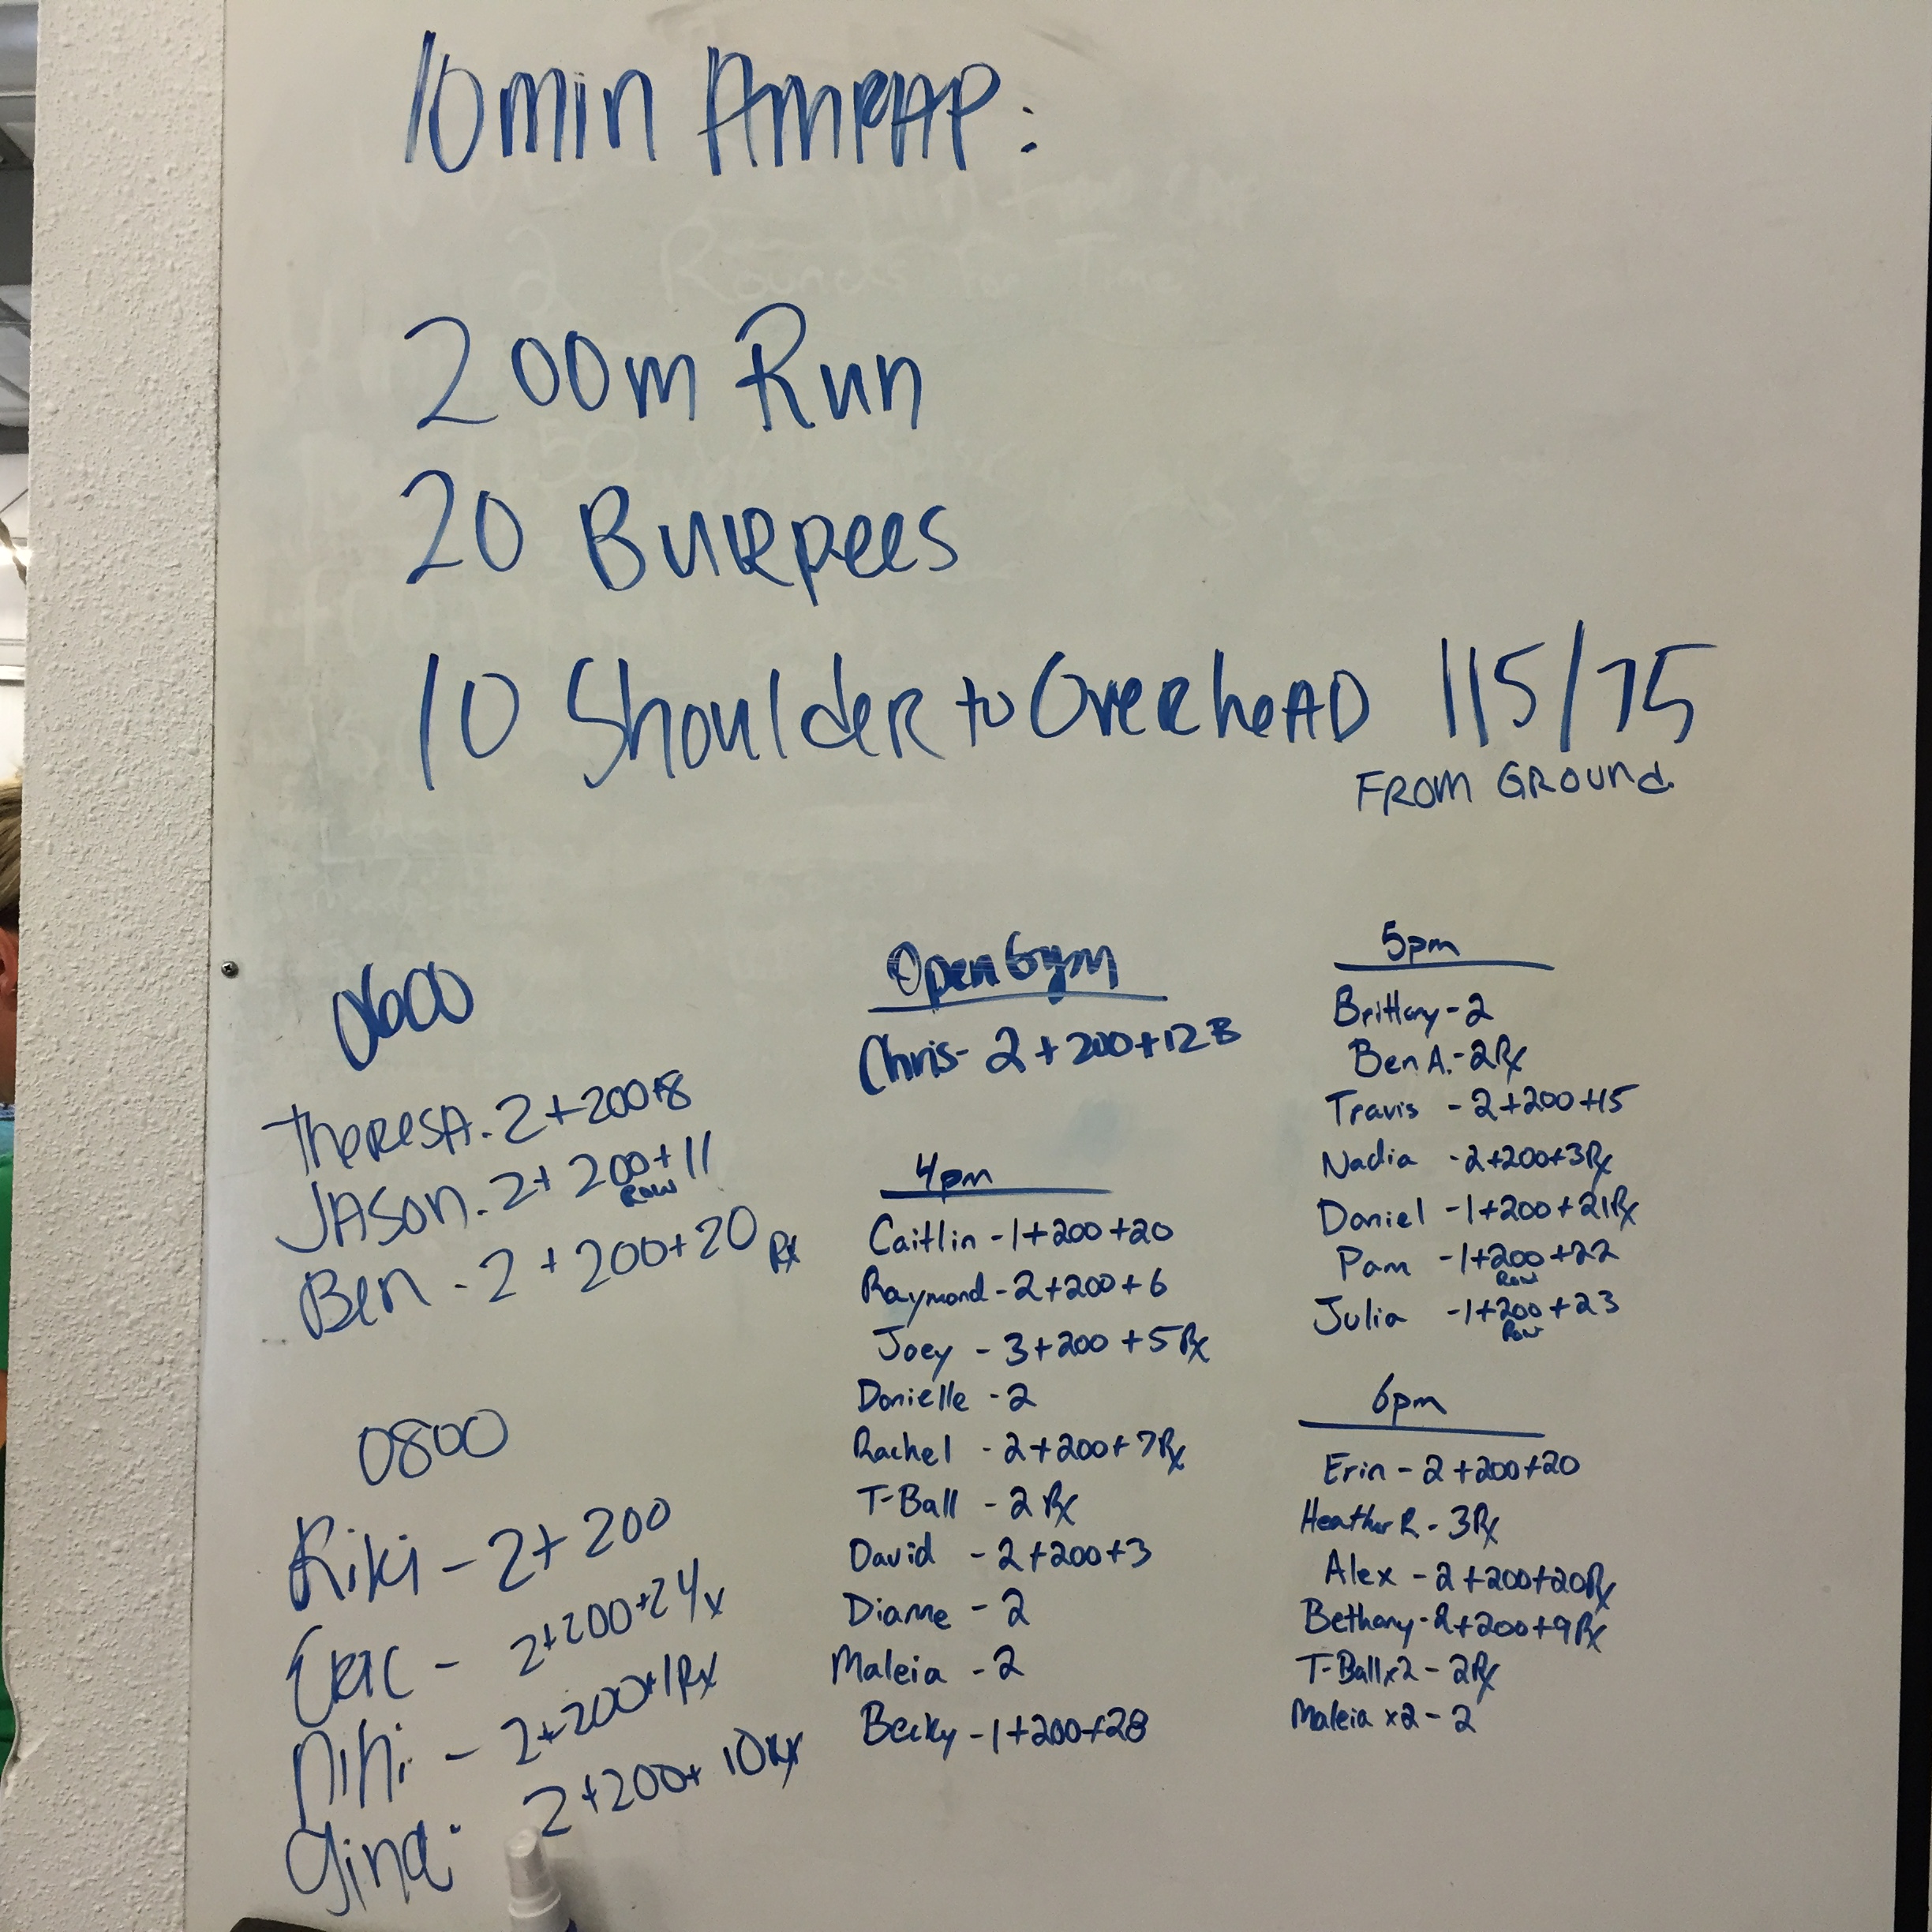 10min AMRAP:
2 Rounds for Time
200m Run
20 Burpees
10 Shoulder to Overhead 115/75
FROM GROUND
0600
Theresa. 2+200+8
Jason. 2+200+11
Row
Ben - 2+200+20 Rx
0800
Kiki - 2+200
Eric - 2+200+24
- 2+200+1Rx
Gina - 2+200+10Rx
Open Gym
Chris- 2+200+12B
4pm
Caitlin -1+200+20
Raymond -2+200+6
Joey - 3+200+5Rx
Danielle -2
Rachel - 2+200+7Rx
T-Ball - 2Rx
David - 2+200+3
Diane - 2
Maleia - 2
Becky -1+200+28
5pm
Brittany-2
Ben A.-2Rx
Travis - 2+200+15
Nadia -2+200+3Rx
Daniel -1+200+21Rx
Pam -1+200+22
Row
Julia -1+200+23
Row
6pm
Erin - 2+200+20
Heather R - 3Rx
Alex - 2+200+20Rx
Bethany-2+200+9Rx
T-Ballx2 - 2Rx
Maleia x2 - 2